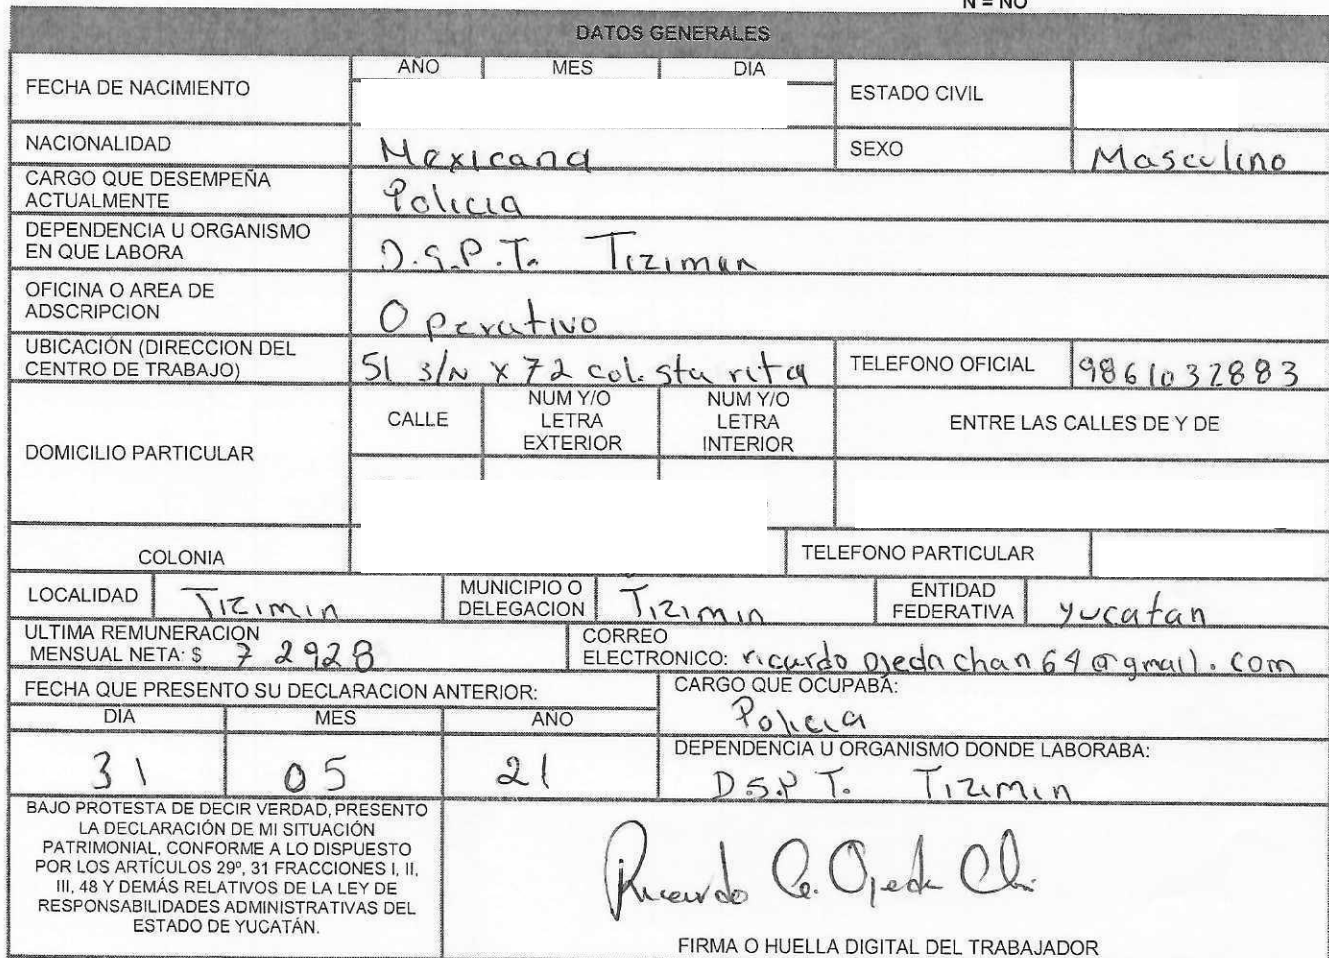 N = NO
DATOS GENERALES
FECHA DE NACIMIENTO
AÑO MES DIA
ESTADO CIVIL
NACIONALIDAD Mexicana SEXO Masculino
CARGO QUE DESEMPEÑA
ACTUALMENTE Policia
DEPENDENCIA U ORGANISMO
EN QUE LABORA D.S.P.T. Tizimin
OFICINA O AREA DE
ADSCRIPCION Operativo
UBICACIÓN (DIRECCION DEL
CENTRO DE TRABAJO) 51 s/N x 72 col. sta rita TELEFONO OFICIAL 9861032883
DOMICILIO PARTICULAR
CALLE
NUM Y/O
LETRA
EXTERIOR
NUM Y/O
LETRA
INTERIOR
ENTRE LAS CALLES DE Y DE
COLONIA TELEFONO PARTICULAR
LOCALIDAD Tizimin MUNICIPIO O
DELEGACION Tizimin ENTIDAD
FEDERATIVA yucatan
ULTIMA REMUNERACION
MENSUAL NETA: $ 7 2928
CORREO
ELECTRONICO: ricardo ojeda chan 64 @ gmail. com
FECHA QUE PRESENTO SU DECLARACION ANTERIOR:
DIA MES AÑO
31 05 21
CARGO QUE OCUPABA:
Policia
DEPENDENCIA U ORGANISMO DONDE LABORABA:
D.S.P T. Tizimin
BAJO PROTESTA DE DECIR VERDAD, PRESENTO
LA DECLARACIÓN DE MI SITUACIÓN
PATRIMONIAL, CONFORME A LO DISPUESTO
POR LOS ARTÍCULOS 29º, 31 FRACCIONES I, II,
III, 48 Y DEMÁS RELATIVOS DE LA LEY DE
RESPONSABILIDADES ADMINISTRATIVAS DEL
ESTADO DE YUCATÁN.
Ricardo G. Ojeda Ch
FIRMA O HUELLA DIGITAL DEL TRABAJADOR